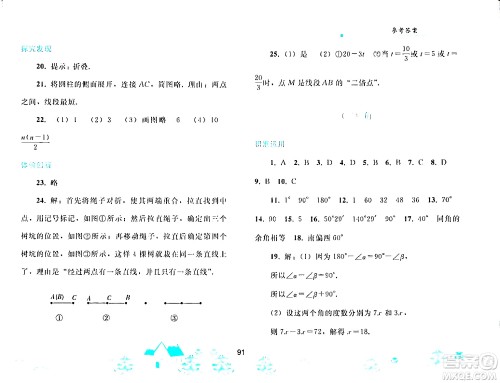 参考答案
探究发现
20. 提示：折叠.
21. 将圆柱的侧面展开，连接 AC，简图略. 理由：两点
之间，线段最短.
22. （1）1 （2）3 （3）画图略 （4）6 （5）10
n(n－1)/2
23. 略
24. 解：首先将绳子对折，使其两端重合，拉直绳子，
用记号标记，如图①所示；然后拉直绳子，标记三个
树坑的位置，如图②所示；再移动绳子，标记出第四个
树坑的位置，如图③所示. 这样 4 个树坑就在一条直线
上. 理由是“经过两点有一条直线，并且只有一条直线”.
A(B) C A C B
① ② ③
25. （1）是 （2）20－3t ③当 t＝10/3 或 t＝5 或 t＝
20/3 时，点 M 是线段 AB 的“二倍点”.
1. A 2. B 3. D 4. C 5. C 6. D 7. B 8. D
9. B 10. C
11. 1° 90° 180° 12. 1 60 32 48 36 13. 70°
14. 90 15. 55° 145° 16. 40° 17. 70° 同角的
余角相等 18. 南偏西60°
19. 解：（1）因为 180°－∠α＝90°－∠β，
所以∠α－∠β＝180°－90°，
所以∠α－∠β＝90°.
（2）设这两个角的度数分别为 7x 和 3x，
所以 7x－3x＝72，解得 x＝18.
91